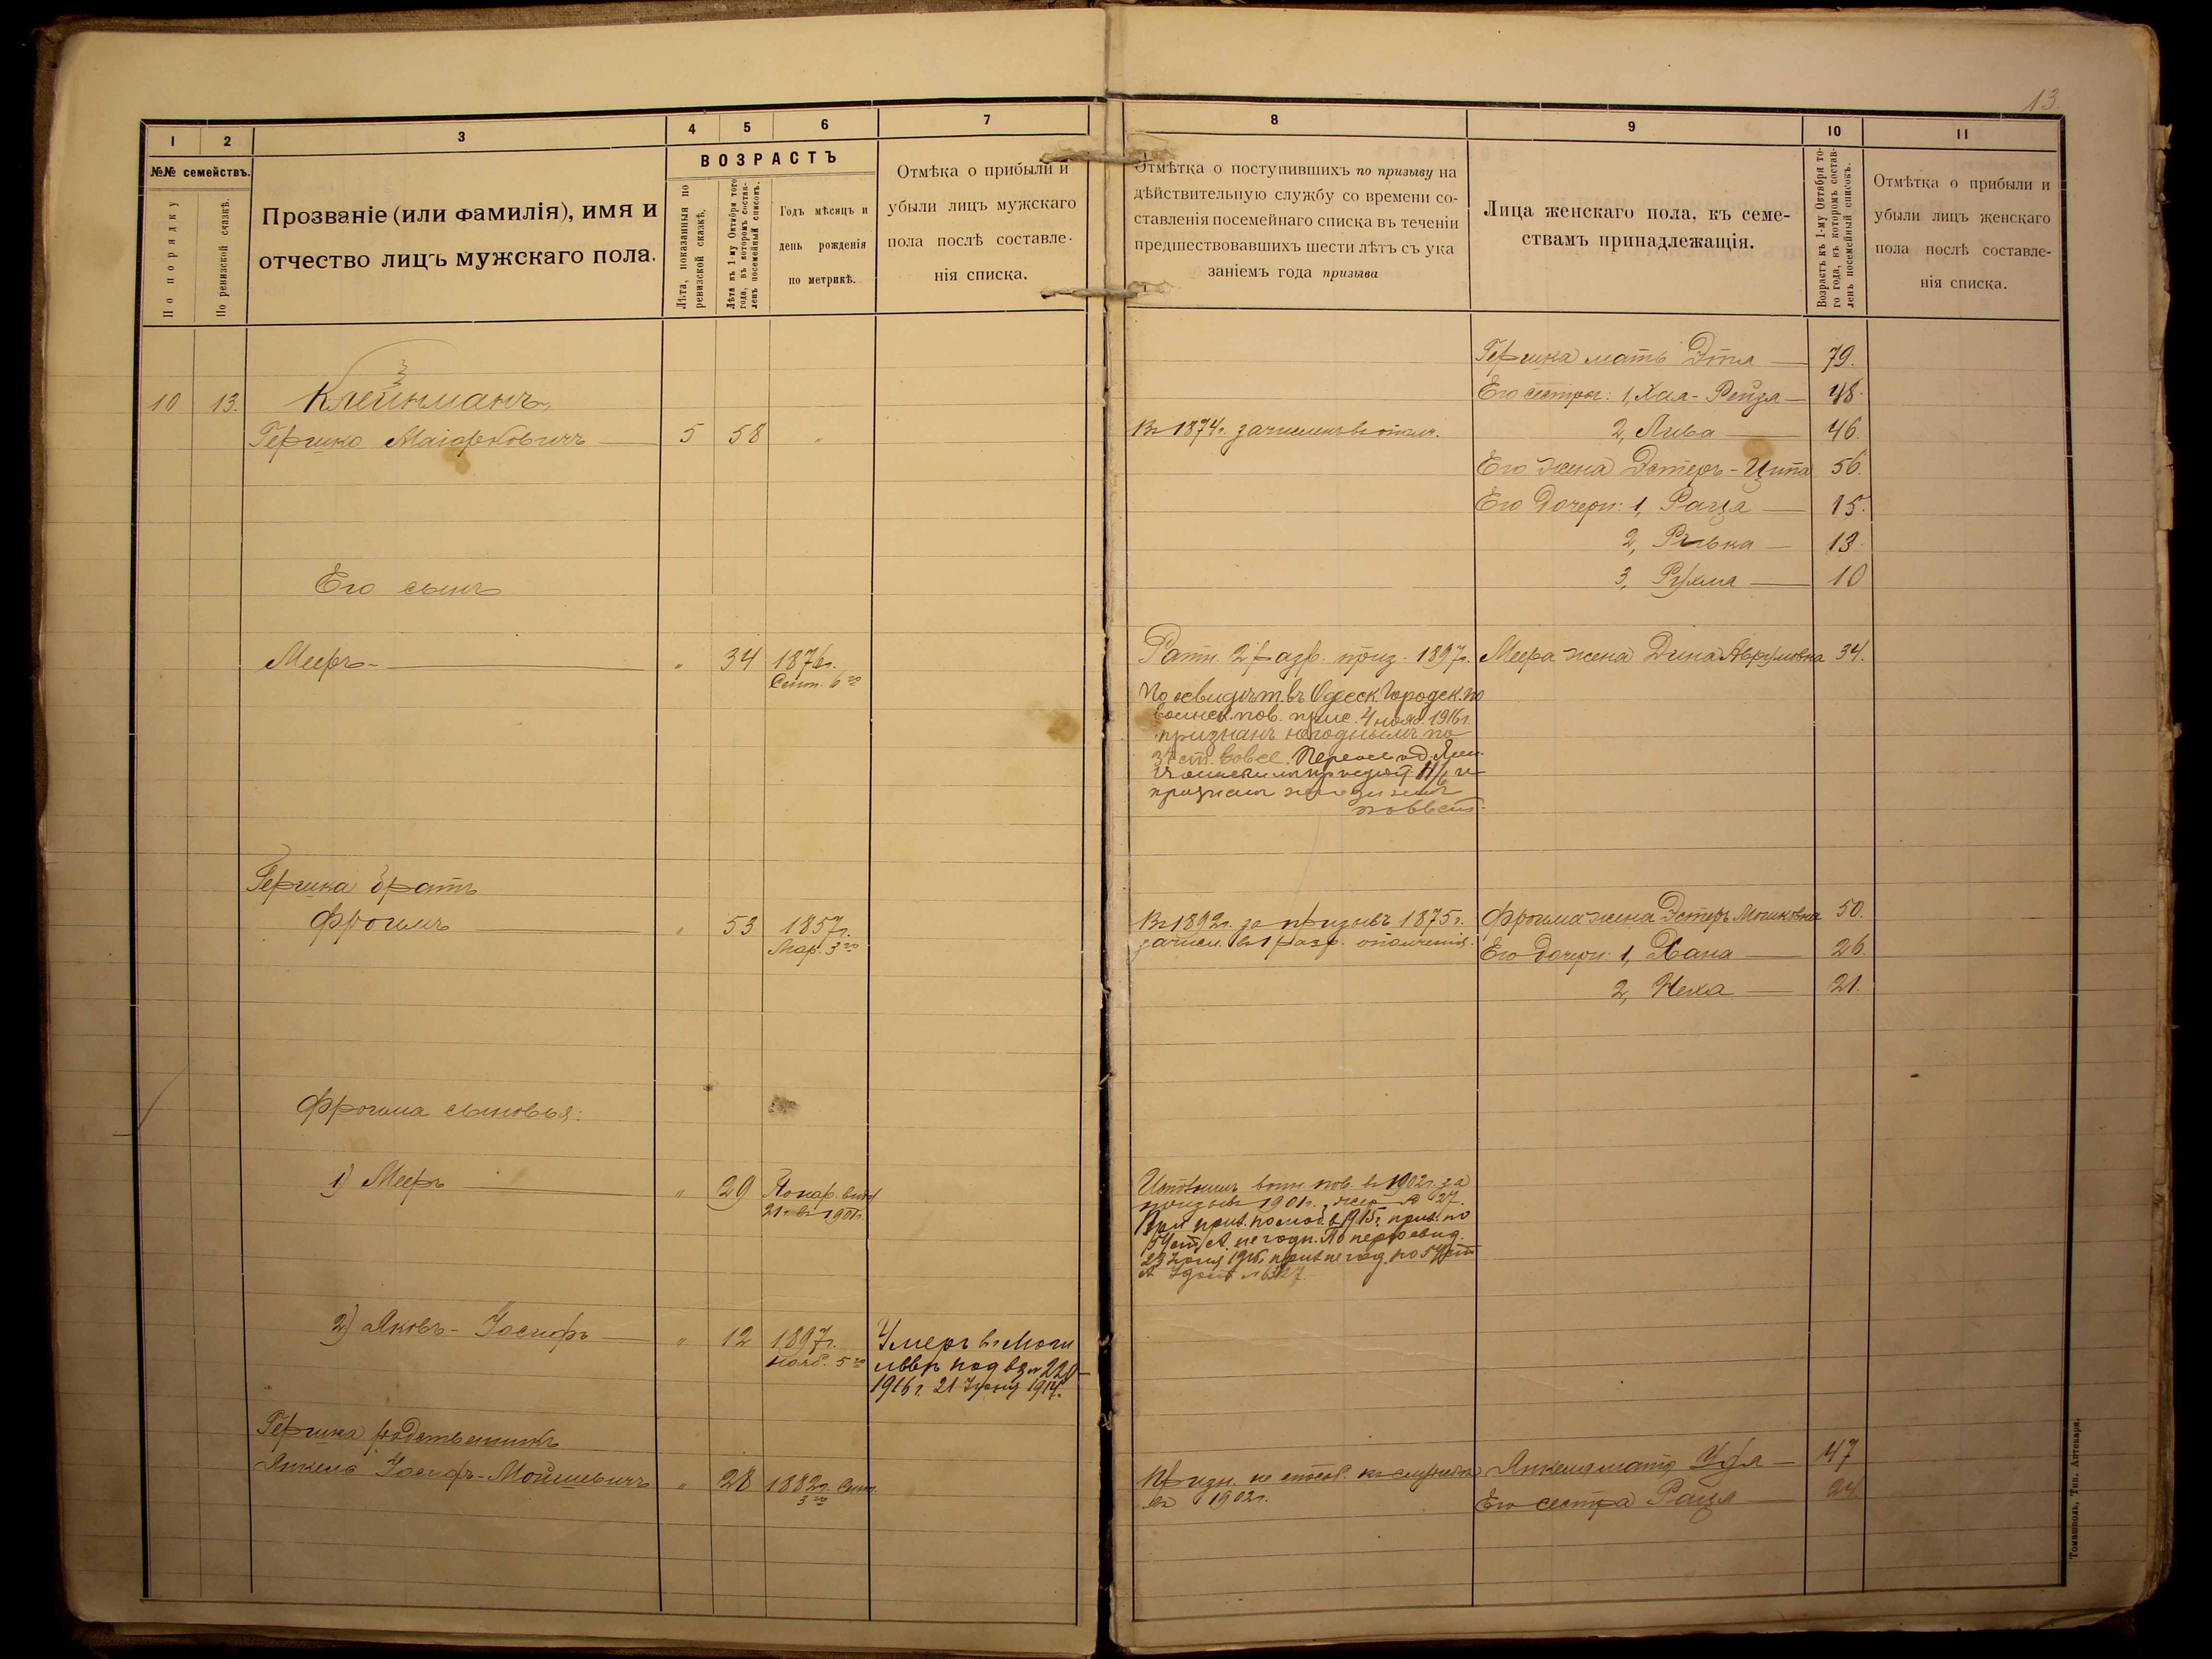 13.
1
2
3
4
5
6
7
8
9
10
11
№№ семействъ.
По порядку
По ревизской сказкѣ.
Прозваніе (или фамилія), имя и
отчество лицъ мужскаго пола.
ВОЗРАСТЪ
Лѣта, показанныя по
ревизской сказкѣ.
Лѣта къ 1-му Октября того
года, въ которомъ состав-
ленъ посемейный списокъ.
Годъ мѣсяцъ и
день рожденія
по метрикѣ.
Отмѣка о прибыли и
убыли лицъ мужскаго
пола послѣ составле-
нія списка.
Отмѣтка о поступившихъ по призыву на
дѣйствительную службу со времени со-
ставленія посемейнаго списка въ теченіи
предшествовавшихъ шести лѣтъ съ ука
заніемъ года призыва
Лица женскаго пола, къ семе-
ствамъ принадлежащія.
Возрастъ къ 1-му Октября то-
го года, въ которомъ состав-
ленъ посемейный списокъ.
Отмѣтка о прибыли и
убыли лицъ женскаго
пола послѣ составле-
нія списка.
Гершка мать Этля — 79.
10 13. Клейнманъ
Его сестры: 1, Хая-Рейзя — 48.
Гершко Маіорковичъ — 5 58 "
Въ 1874г. зачисленъ въ ополч.
2, Лива — 46.
Его жена Эстеръ-Ципа 56.
Его дочери: 1, Рація — 15.
2, Ривка — 13.
Его сынъ
3, Рухля — 10
Мееръ — " 34 1876г.
Сент. 6го
Ратн. 2 разр. приз. 1897г.
Меера жена Дина Аврумовна 34.
По освидѣт. въ Одесск. Городск. по
воинск. пов. прис. 4 нояб. 1916г.
признанъ негоднымъ по
Гершка братъ
Фроимъ — " 53 1857г.
Мар. 3го
Въ 1892г. за призывъ 1875г.
зачисл. въ 1 разр. ополченія.
Фроима жена Эстеръ Мошковна 50.
Его дочери: 1, Хана — 26.
2, Неха — 21.
Фроима сыновья:
1) Мееръ — " 29
21 г. въ 1901г.
воин. пов. въ 1902г. за
призывъ 1901г.
2) Яковъ-Іосифъ — " 12 1897г.
Нояб. 5го
Умеръ въ Моги
1916г. 21 1914.
Гершка родственникъ
Янкель Іосифъ-Мойшевичъ " 28 1882г. Сент.
3го
Призн. не способ. къ службѣ
въ 1902г.
Янкеля мать Удя — 47
Его сестра Рація — 24
Томашполь, Тип. Аптекаря.